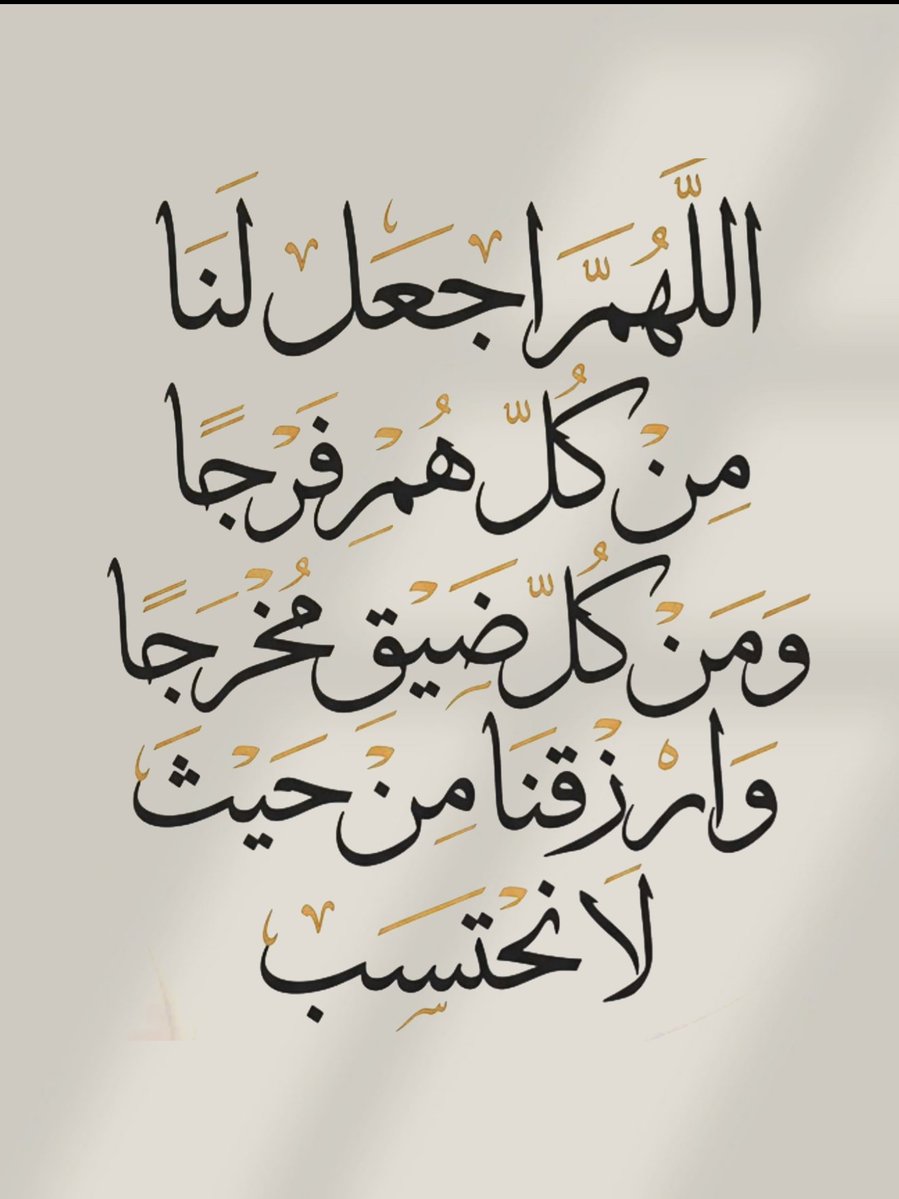 اللَّهُمَّ اجْعَل لَنَا
مِنْ كُلّ هُمِ فَرْجًا
وَمَنْ كُلّ ضِيْق مُخْرَجًا
وَارْزْقنَا مِنْ حَيْثَ
لَا نَحْتَسِب